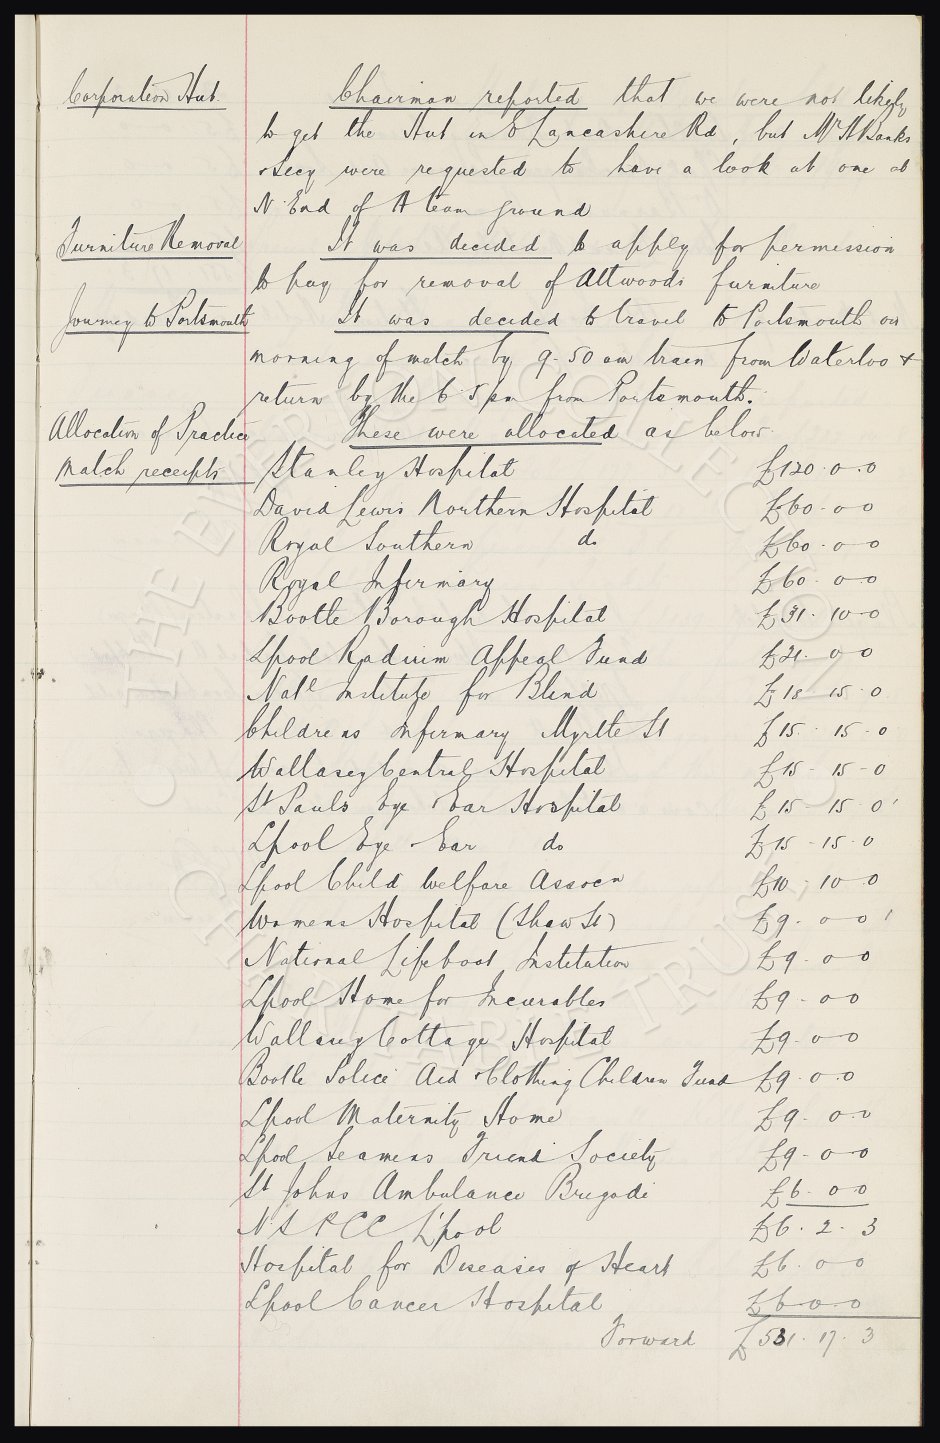 Corporation Hut. Chairman reported that we were not likely
to get the Hut in E Lancashire Rd, but Mr H Banks
& Secy were requested to have a look at one at
N. End of A team ground
Furniture Removal It was decided to apply for permission
to pay for removal of Attwoods furniture
Journey to Portsmouth It was decided to travel to Portsmouth on
morning of match by 9-50 am train from Waterloo &
return by the 6.5 pm from Portsmouth.
Allocation of Practice These were allocated as below
match receipts Stanley Hospital £120.0.0
David Lewis Northern Hospital £60-0-0
Royal Southern do £60-0-0
Royal Infirmary £60-0-0
Bootle Borough Hospital £31-10-0
Lpool Radium Appeal Fund £21-0-0
Natl Institute for Blind £18-15-0
Childrens Infirmary Myrtle St £15-15-0
Wallasey Central Hospital £15-15-0
St Pauls Eye & Ear Hospital £15-15-0
Lpool Eye & Ear do £15-15-0
Lpool Child Welfare Assocn £10-10-0
Womens Hospital (Shaw St) £9-0-0
National Lifeboat Institution £9-0-0
Lpool Home for Incurables £9-0-0
Wallasey Cottage Hospital £9-0-0
Bootle Police Aid & Clothing Children Fund £9-0-0
Lpool Maternity Home £9-0-0
Lpool Seamens Friend Society £9-0-0
St Johns Ambulance Brigade £6-0-0
N S P C C L'pool £6.2.3
Hospital for Diseases of Heart £6-0-0
Lpool Cancer Hospital £6-0-0
Forward £531.17.3
THE EVERTON COLLECTION
CHARITABLE TRUST